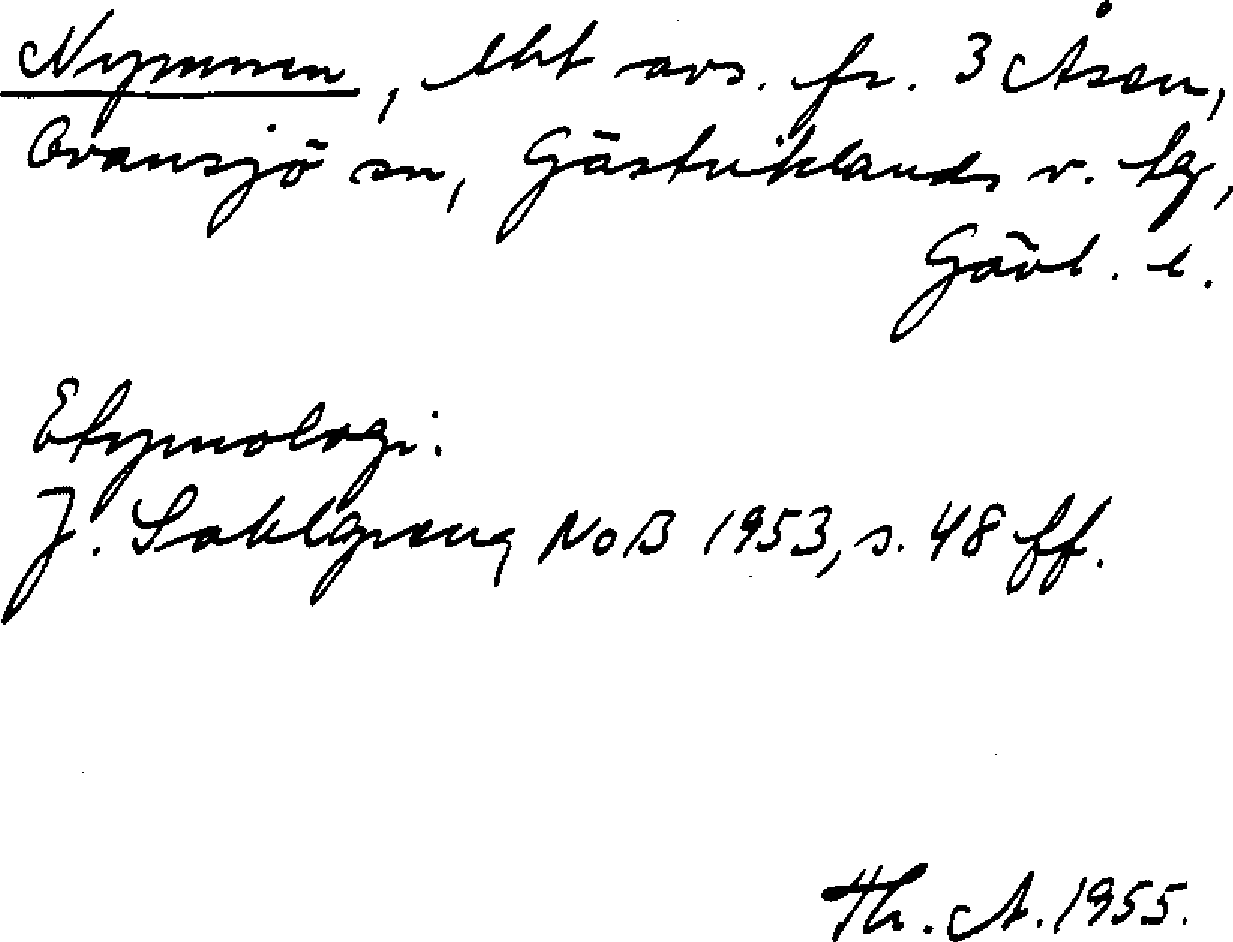 Nymmen, lht avs. fr. 3 Åsen,
Ovansjö sn, Gästriklands v. tg,
Gävl. l.
Etymologi.
J. Sahlgren, NoB 1953, s. 48 ff.
Th. A. 1955.